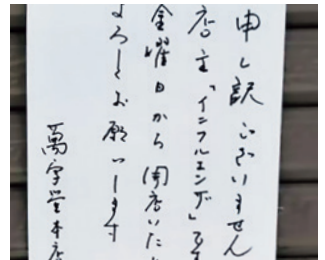 申し訳ございません
店主「インフルエンザ」です
金曜日から開店いたし
よろしくお願いします
萬字堂本店